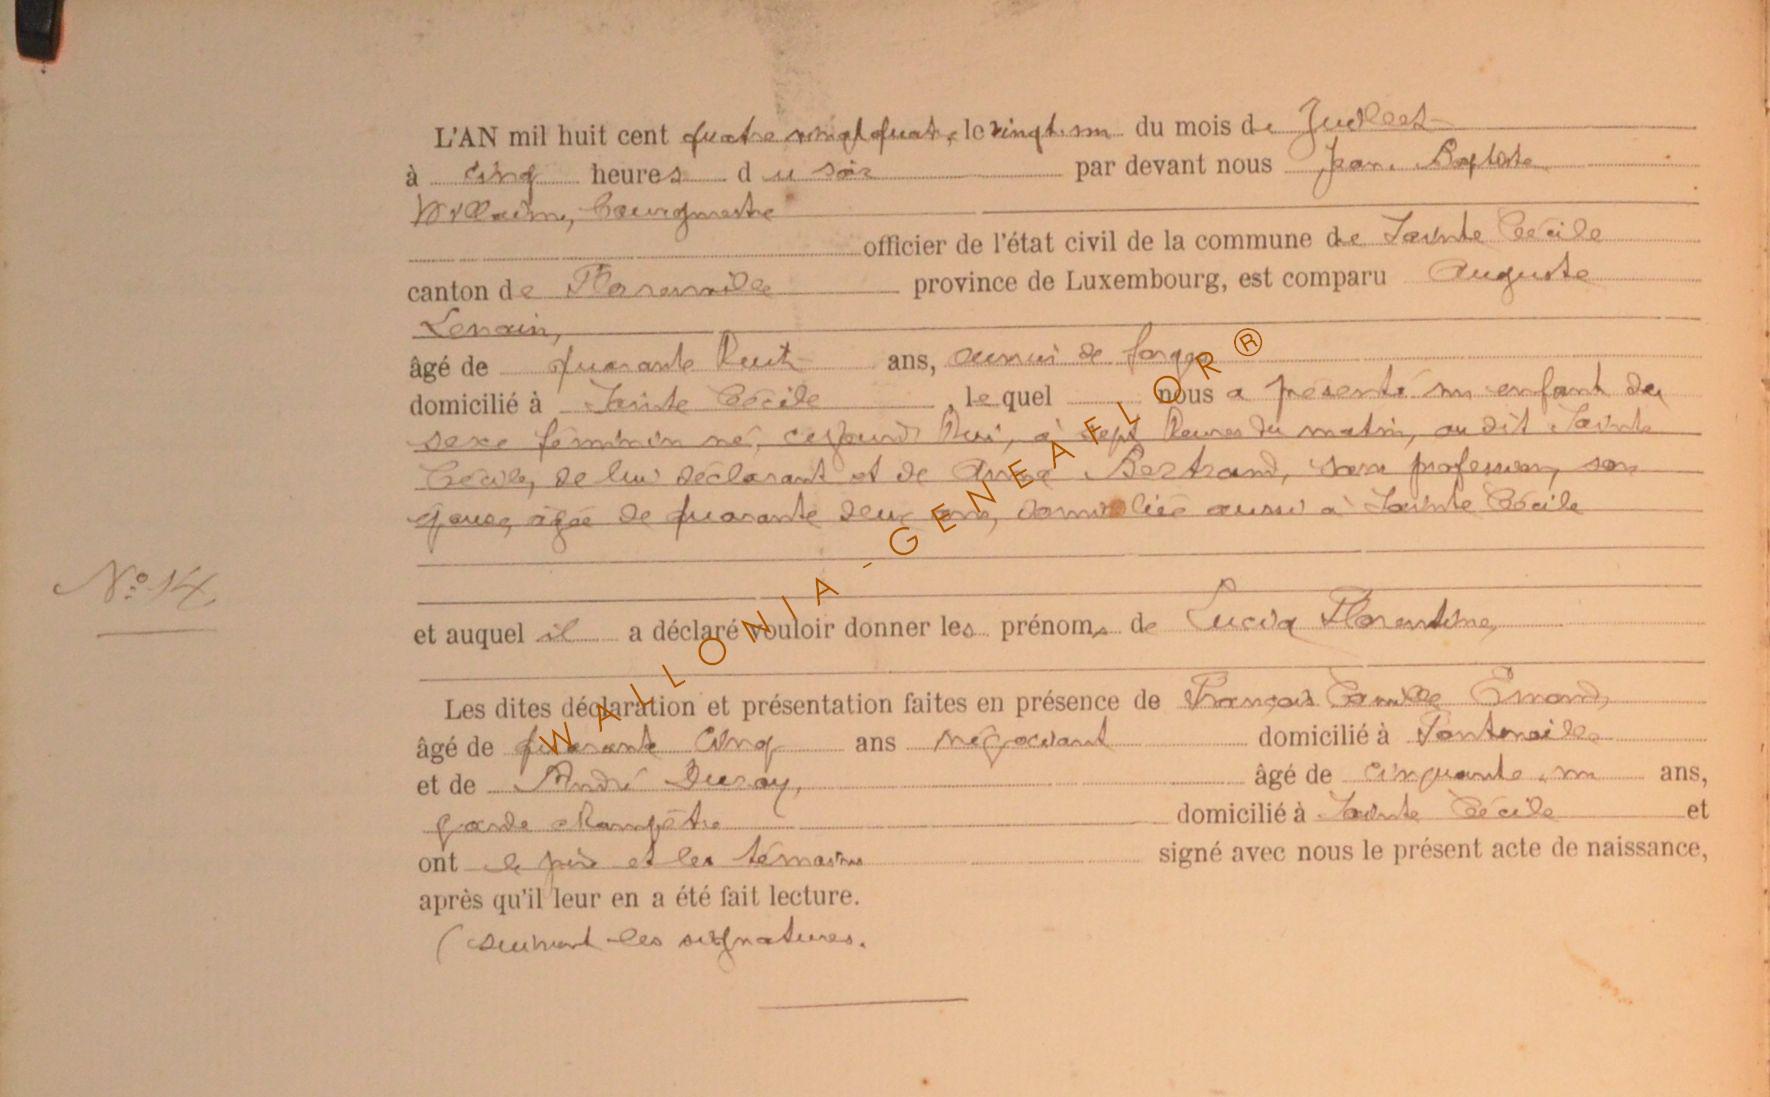 L'AN mil huit cent quatre vingt quatre, le vingt-un du mois de Juillet
à cinq heures du soir par devant nous Jean-Baptiste
Willaime, bourgmestre
officier de l'état civil de la commune de Sainte Cécile
canton de Florenville province de Luxembourg, est comparu Auguste
Lenoir,
âgé de quarante huit ans, ouvrier de forges
domicilié à Sainte Cécile, lequel nous a présenté un enfant du
sexe féminin né, cejourd'hui, à sept heures du matin, au dit Sainte
Cécile, de lui déclarant et de Anne Bertrand, sans profession, son
épouse, âgée de quarante deux ans, domiciliée aussi à Sainte Cécile
No 14.
et auquel il a déclaré vouloir donner les prénoms de Lucia Florentine,
Les dites déclaration et présentation faites en présence de François Camille Emond,
âgé de quarante cinq ans négociant domicilié à Fontenoille
et de André Duroy, âgé de cinquante-un ans,
garde champêtre domicilié à Sainte Cécile et
ont le père et les témoins signé avec nous le présent acte de naissance,
après qu'il leur en a été fait lecture.
(suivent les signatures.
WALLONIA - GENEAFLOR ®